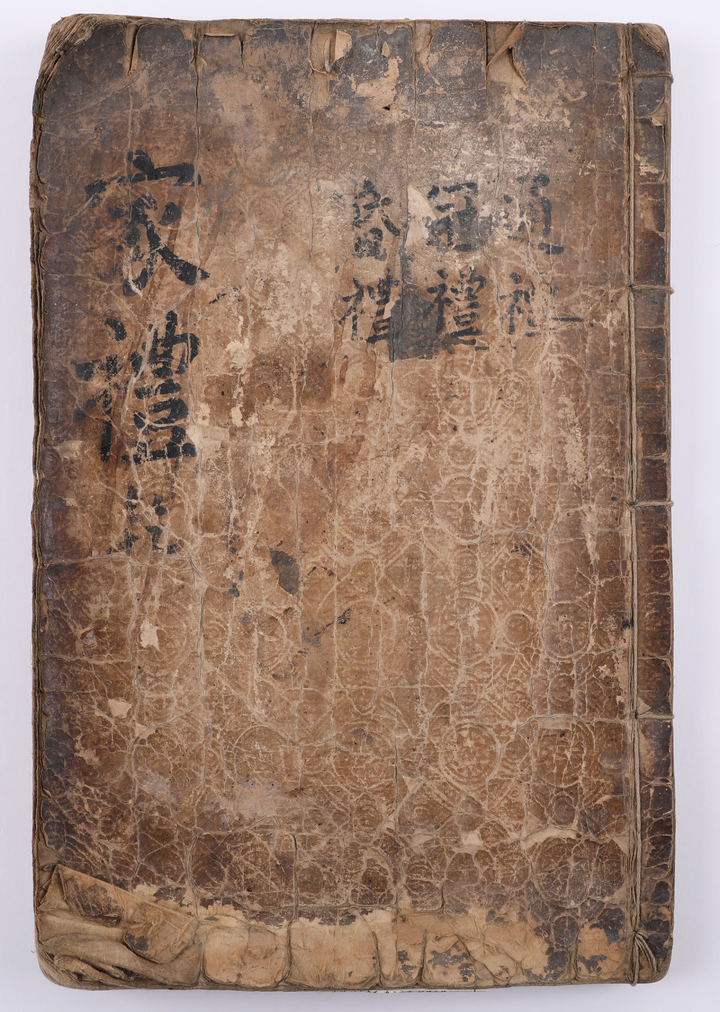 通禮
冠禮
昏禮
家禮乾